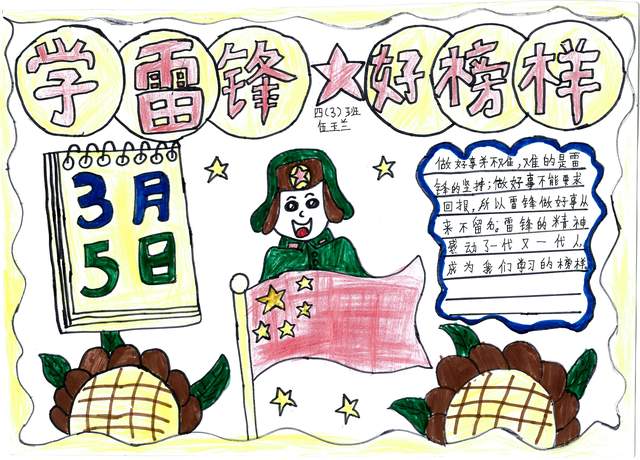 学雷锋★好榜样
四(3)班
任玉兰
3月
5日
做好事并不难,难的是雷
锋的坚持;做好事不能要求
回报,所以雷锋做好事从
来不留名。雷锋的精神
感动了一代又一代人,
成为我们学习的榜样